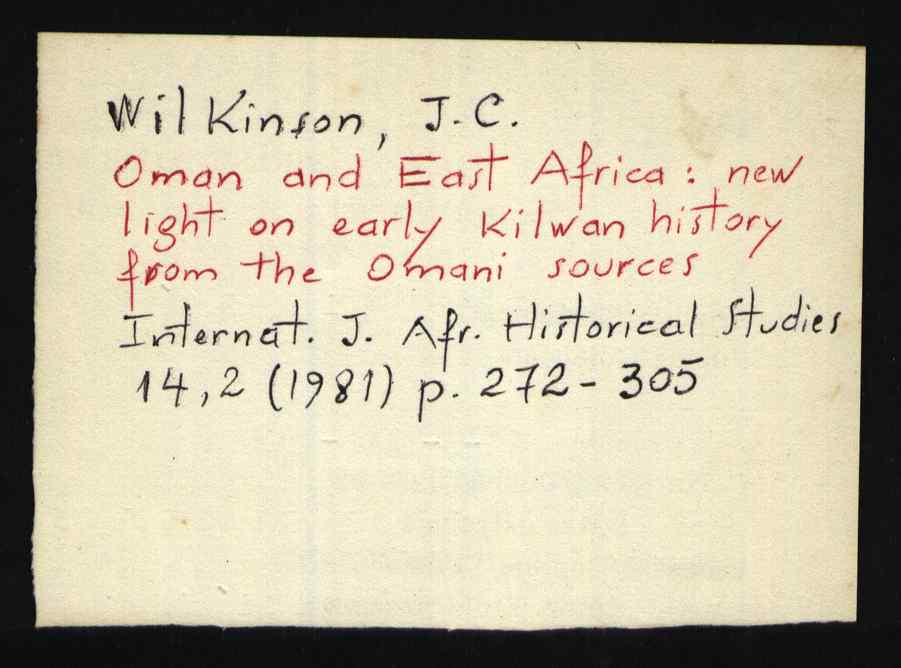 Wilkinson, J.C.
Oman and East Africa: new
light on early Kilwan history
from the Omani sources
Internat. J. Afr. Historical Studies
14,2 (1981) p. 272-305